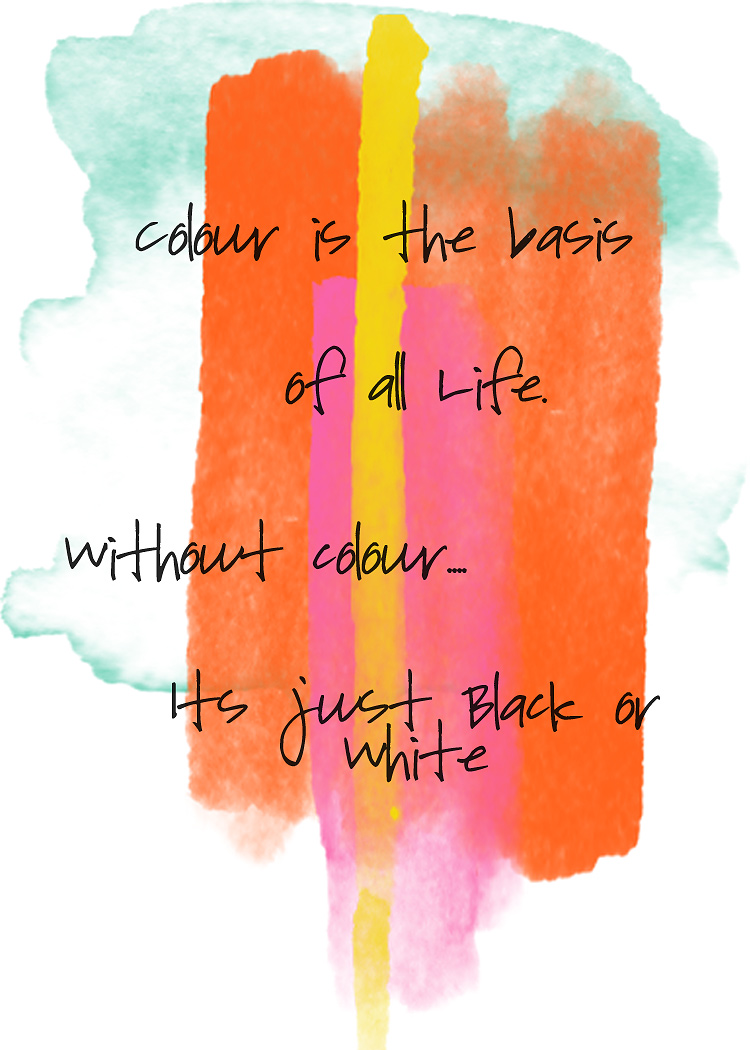 colour is the basis
of all Life.
without colour....
Its just Black or
white